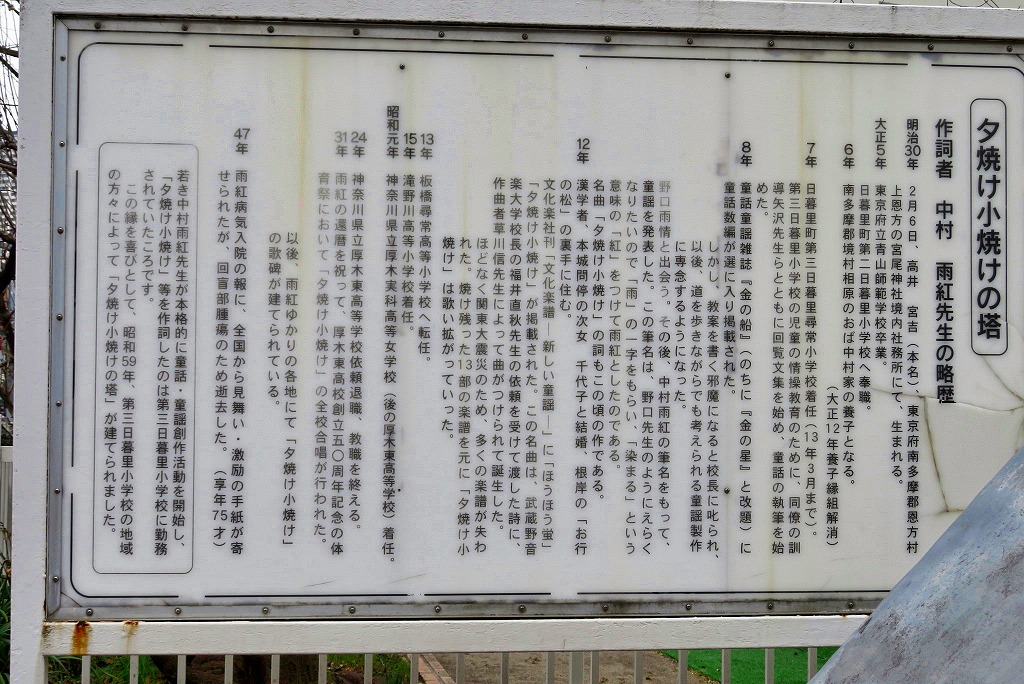 夕焼け小焼けの塔
作詞者 中村 雨紅先生の略歴
明治30年 2月6日、高井 宮吉（本名）東京府南多摩郡恩方村
上恩方の宮尾神社境内社務所にて、生まれる。
大正5年 東京府立青山師範学校卒業。
日暮里町第二日暮里小学校へ奉職。
6年 南多摩郡境村相原のおば中村家の養子となる。
（大正12年養子縁組解消）
7年 日暮里町第三日暮里尋常小学校着任（13年3月まで）。
第三日暮里小学校の児童の情操教育のために、同僚の訓
導矢沢先生らとともに回覧文集を始め、童話の執筆を始
めた。
8年 童話童謡雑誌『金の船』（のちに『金の星』と改題）に
童話数編が選に入り掲載された。
しかし、教案を書く邪魔になると校長に叱られ、
以後、道を歩きながらでも考えられる童謡製作
に専念するようになった。
野口雨情と出会う。その後、中村雨紅の筆名をもって、
童謡を発表した。この筆名は、野口先生のようにえらく
なりたいので「雨」の一字をもらい、「染まる」という
意味の「紅」をつけて雨紅としたのである。
名曲「夕焼け小焼け」の詞もこの頃の作である。
12年 漢学者、本城問亭の次女 千代子と結婚、根岸の「お行
の松」の裏手に住む。
文化楽社刊「文化楽譜―新しい童謡―」に「ほうほう蛍」
「夕焼け小焼け」が掲載された。この名曲は、武蔵野音
楽大学校長の福井直秋先生の依頼を受けて渡した詩に、
作曲者草川信先生によって曲がつけられて誕生した。
ほどなく関東大震災のため、多くの楽譜が失わ
れた。焼け残った13部の楽譜を元に「夕焼け小
焼け」は歌い拡がっていった。
13年 板橋尋常高等小学校へ転任。
15年 滝野川高等小学校着任。
昭和元年 神奈川県立厚木実科高等女学校（後の厚木東高等学校）着任。
24年 神奈川県立厚木東高等学校依頼退職、教職を終える。
31年 雨紅の還暦を祝って、厚木東高校創立五〇周年記念の体
育祭において「夕焼け小焼け」の全校合唱が行われた。
以後、雨紅ゆかりの各地にて「夕焼け小焼け」
の歌碑が建てられている。
47年 雨紅病気入院の報に、全国から見舞い・激励の手紙が寄
せられたが、回盲部腫瘍のため逝去した。（享年75才）
若き中村雨紅先生が本格的に童話・童謡創作活動を開始し、
「夕焼け小焼け」等を作詞したのは第三日暮里小学校に勤務
されていたころです。
この縁を喜びとして、昭和59年、第三日暮里小学校の地域
の方々によって「夕焼け小焼けの塔」が建てられました。